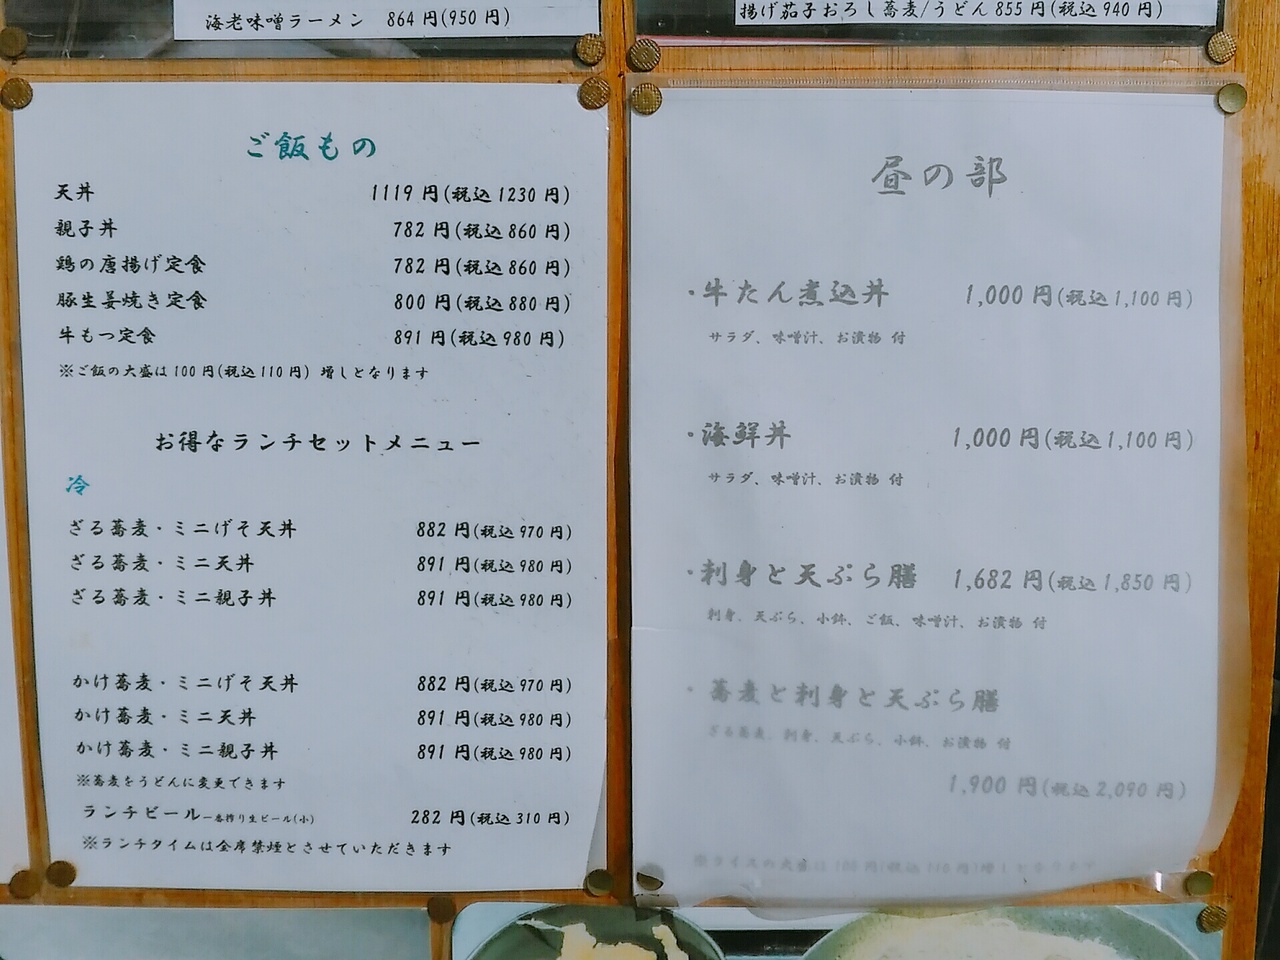 海老味噌ラーメン 864円(950円)
揚げ茄子おろし蕎麦/うどん 855円(税込940円)
ご飯もの
天丼 1119円(税込1230円)
親子丼 782円(税込860円)
鶏の唐揚げ定食 782円(税込860円)
豚生姜焼き定食 800円(税込880円)
牛もつ定食 891円(税込980円)
※ご飯の大盛は100円(税込110円) 増しとなります
お得なランチセットメニュー
冷
ざる蕎麦・ミニげそ天丼 882円(税込970円)
ざる蕎麦・ミニ天丼 891円(税込980円)
ざる蕎麦・ミニ親子丼 891円(税込980円)
かけ蕎麦・ミニげそ天丼 882円(税込970円)
かけ蕎麦・ミニ天丼 891円(税込980円)
かけ蕎麦・ミニ親子丼 891円(税込980円)
※蕎麦をうどんに変更できます
ランチビール一番搾り生ビール(小) 282円(税込310円)
※ランチタイムは全席禁煙とさせていただきます
昼の部
・牛たん煮込丼 1,000円(税込1,100円)
サラダ、味噌汁、お漬物 付
・海鮮丼 1,000円(税込1,100円)
サラダ、味噌汁、お漬物 付
・刺身と天ぷら膳 1,682円(税込1,850円)
刺身、天ぷら、小鉢、ご飯、味噌汁、お漬物 付
・蕎麦と刺身と天ぷら膳
ざる蕎麦、刺身、天ぷら、小鉢、お漬物 付
1,900円(税込2,090円)
※ライスの大盛は100円(税込110円)増しとなります